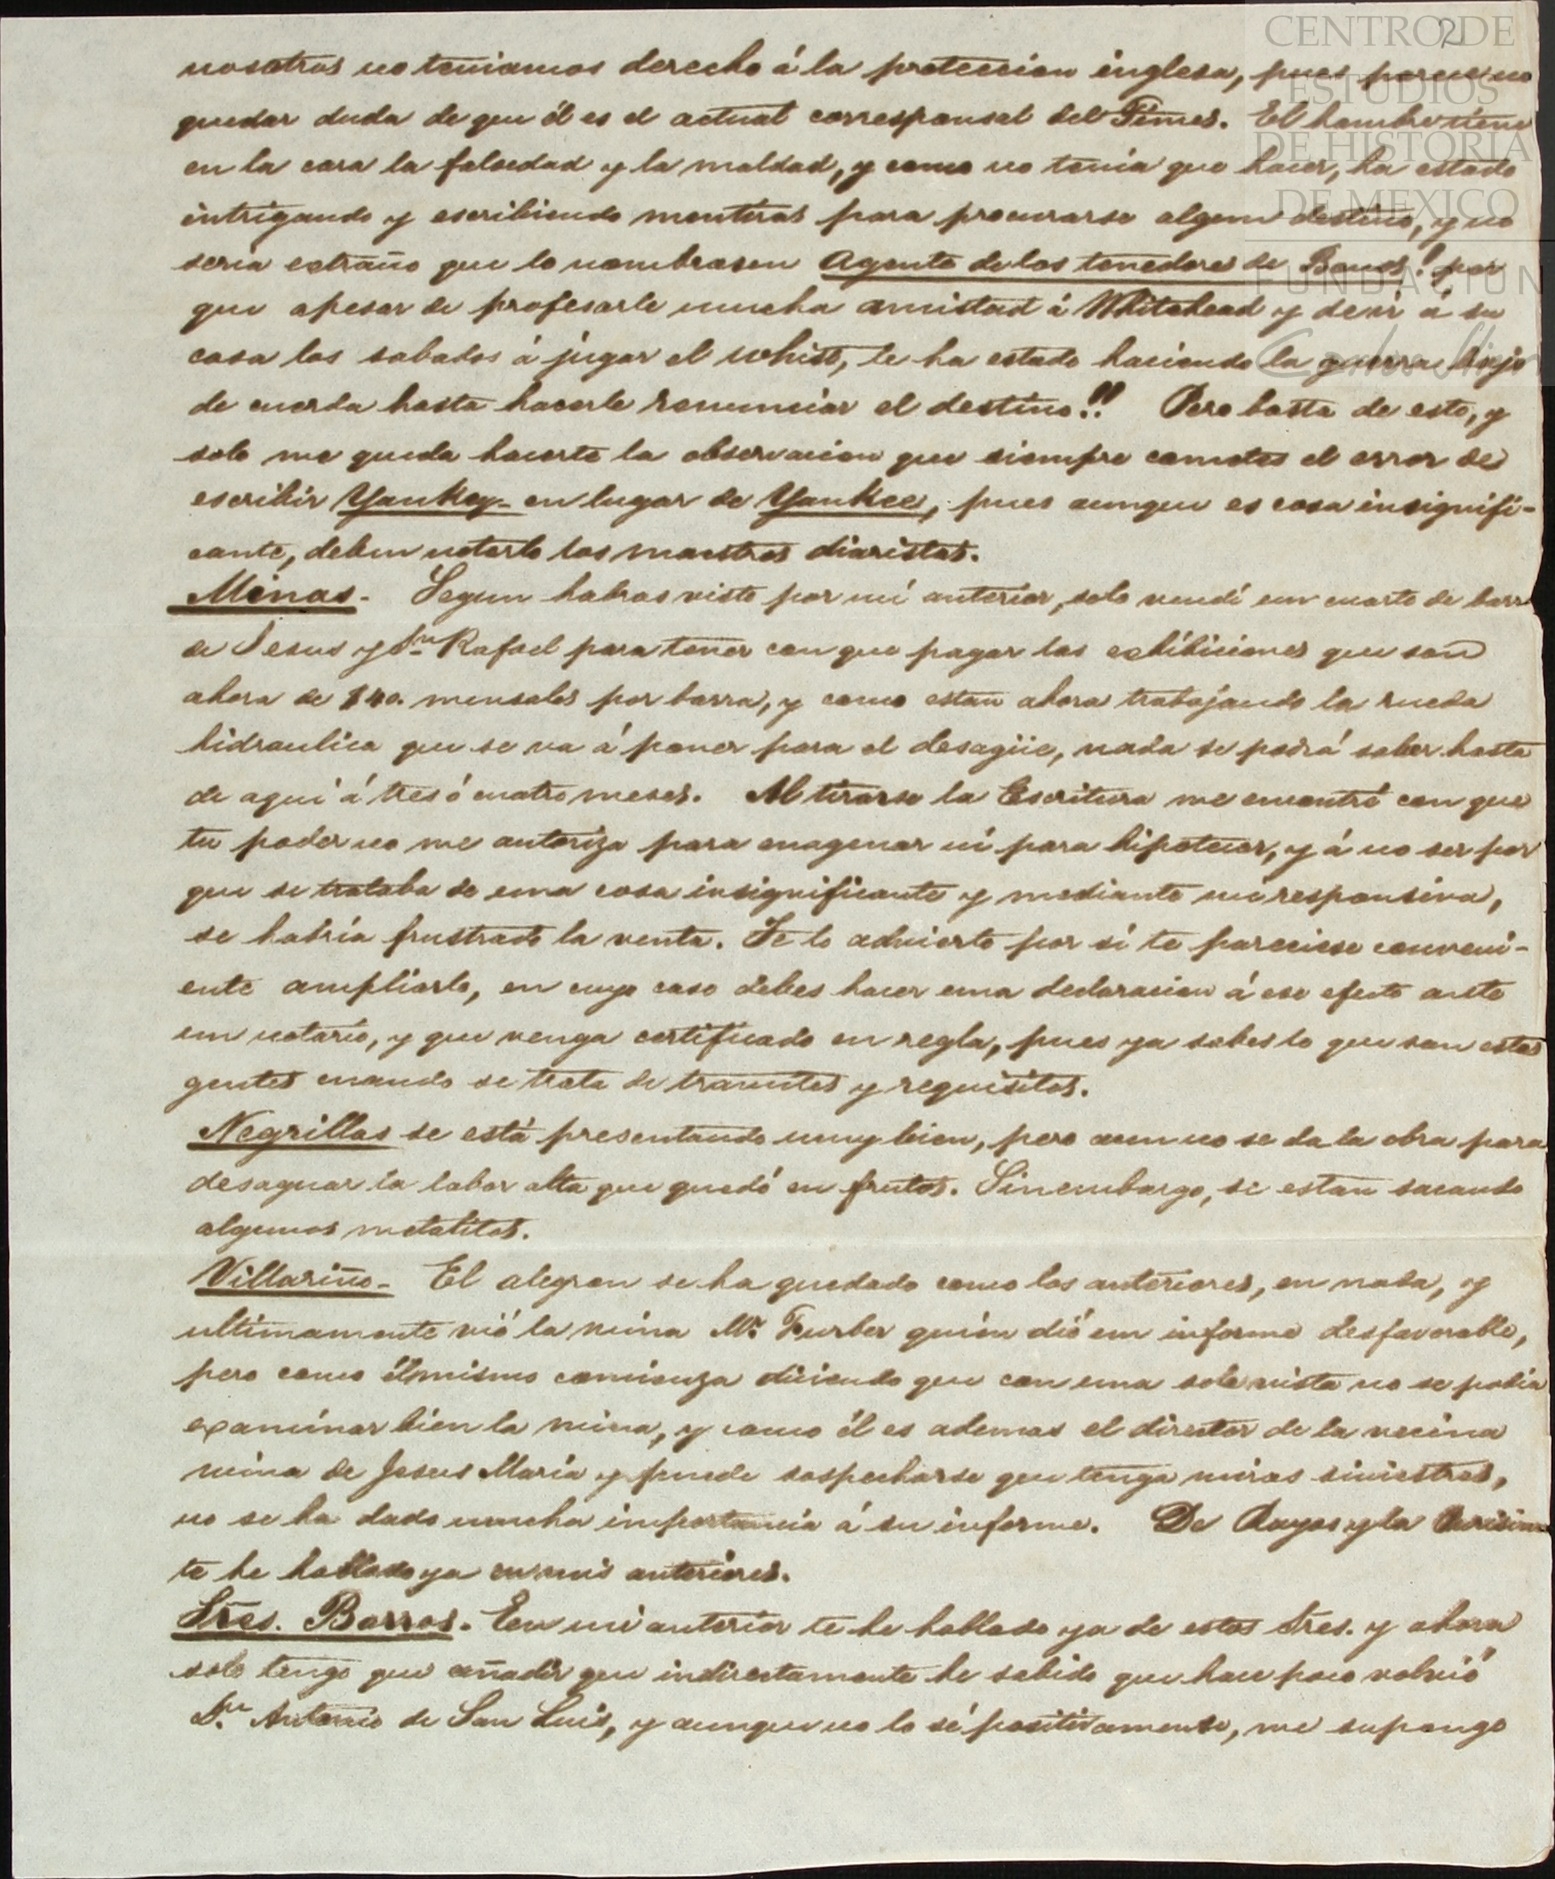 CENTRO DE
ESTUDIOS
DE HISTORIA
DE MEXICO
FUNDACION
2
nosotros no teniamos derecho á la proteccion inglesa, pues parece no
quedar duda de que él es el actual corresponsal del Times. El hombre tiene
en la cara la falsedad y la maldad, y como no tenía que hacer, ha estado
intrigando y escribiendo mentiras para procurarse algun destino, y no
seria estraño que lo nombrasen Agente de los tenedores de Bonos! por
que apesar de profesarle mucha amistad á Whitehead y de ir á su
casa los sabados á jugar el whist, le ha estado haciendo la guerra bajo
de cuerda hasta hacerle renunciar el destino!! Pero basta de esto, y
solo me queda hacerte la observacion que siempre cometes el error de
escribir Yankey en lugar de Yankee, pues aunque es cosa insignifi-
cante, deben notarlo los maestros diaristas.
Minas. Segun habras visto por mi anterior, solo vendí un cuarto de barra
de Jesus y Sn Rafael para tener con que pagar las exhibiciones que son
ahora de $40. mensales por barra, y como estan ahora trabajando la rueda
hidraulica que se va á poner para el desagüe, nada se podrá saber hasta
de aqui á tres ó cuatro meses. Al tirarse la Escritura me encontré con que
tu poder no me autoriza para enagenar ni para hipotecar, y á no ser por
que se trataba de una cosa insignificante y mediante mi responsiva,
se habría frustrado la venta. Te lo advierto por si te pareciese conveni-
ente ampliarlo, en cuyo caso debes hacer una declaracion á ese efecto ante
un notario, y que venga certificado en regla, pues ya sabes lo que son estas
gentes cuando se trata de tramites y requisitos.
Negrillas se está presentando muy bien, pero aun no se da la obra para
desaguar la labor alta que quedó en frutos. Sinembargo, se estan sacando
algunos metalitos.
Villariño- El alegron se ha quedado como los anteriores, en nada, y
ultimamente vió la mina Mr. Furber quién dió un informe desfavorable,
pero como él mismo comienza diciendo que con una sola vista no se podia
examinar bien la mina, y como él es ademas el director de la vecina
mina de Jesus María y puede sospecharse que tenga miras siniestras,
no se ha dado mucha importancia á su informe. De Rayas y la Purisima
te he hablado ya en mis anteriores.
Sres. Barros. En mi anterior te he hablado ya de estos Sres. y ahora
solo tengo que añadir que indirectamente he sabido que hace poco volvió
Dn. Antonio de San Luis, y aunque no lo sé positivamente, me supongo